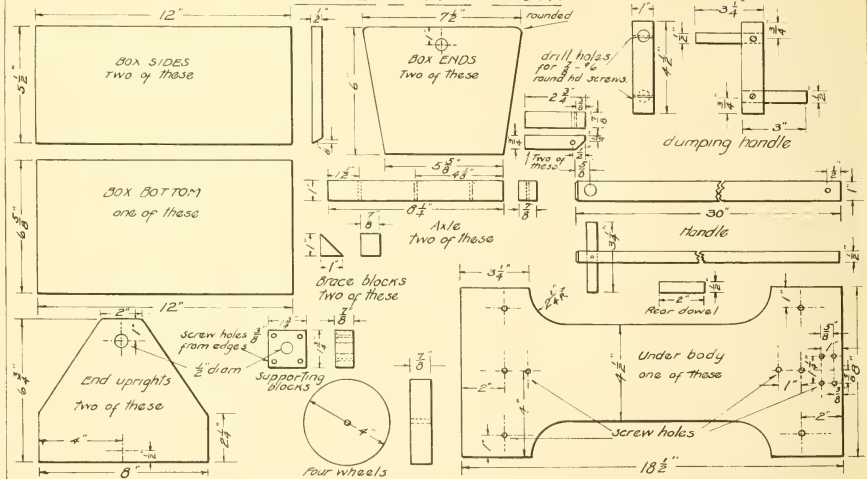 12"
5 1/2"
BOX SIDES
Two of these
1/2"
7 1/2"
rounded
1"
6"
BOX ENDS
Two of these
5 5/8"
drill holes
for 7/8 - #6
round hd screws.
1"
4 1/2"
3 1/4"
1/2"
3/4"
3/4"
1/2"
3"
dumping handle
2 3/4"
7/8"
3/4"
Two of
these
BOX BOTTOM
one of these
6 5/8"
12"
1 1/2"
4 1/8"
1"
8 1/4"
7/8"
Axle
Two of these
7/8"
1"
1"
Brace blocks
Two of these
30"
1"
Handle
3 1/4"
1/2"
2"
1/2"
Rear dowel
2"
1"
6 3/4"
End uprights
Two of these
4"
1/2"
2 1/4"
8"
screw holes 3/8"
from edges
1/2" diam
1 3/4"
1 3/4"
7/8"
Supporting
blocks
4"
7/8"
Four wheels
3 1/4"
1"
4 1/2"
Under body
one of these
2"
4"
1"
1"
2"
8"
screw holes
18 1/2"